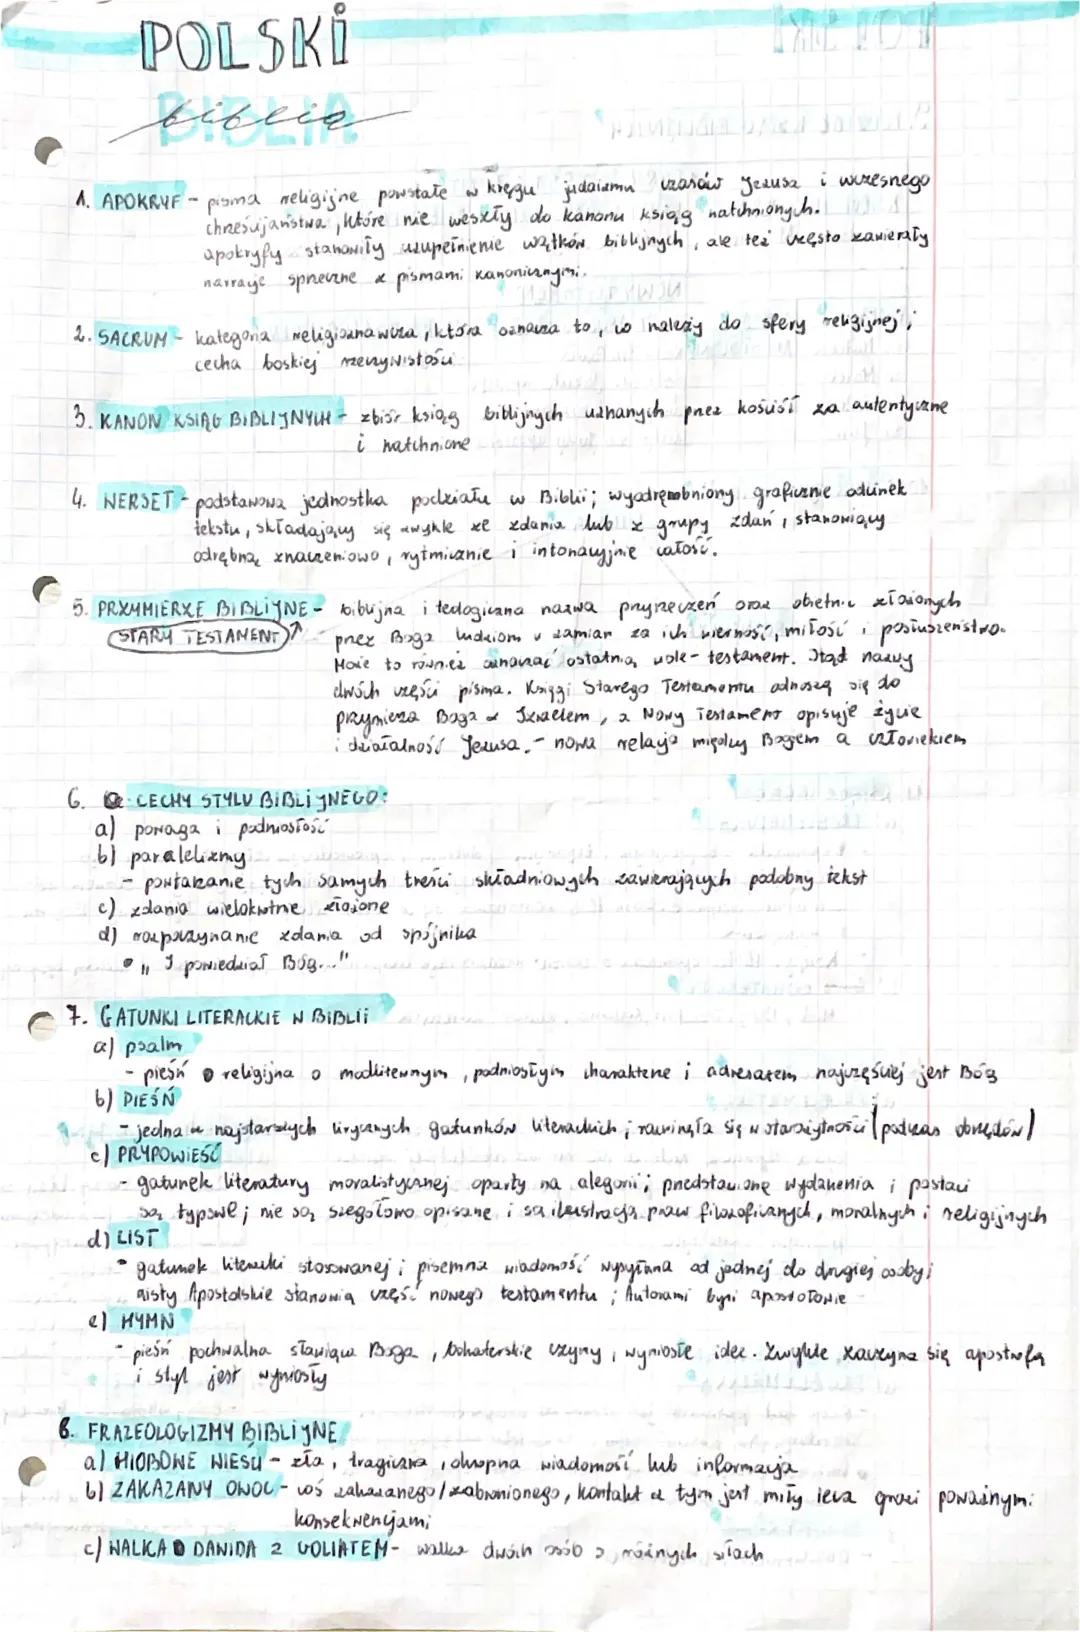 POLSKI
BIBLIA
biblia
1. APOKRYF - pisma religijne powstałe w kręgu judaizmu czasów Jezusa i wczesnego
chrześcijaństwa, które nie weszły do kanonu ksiąg natchnionych.
apokryfy stanowiły uzupełnienie wątków biblijnych, ale też często zawierały
narracje sprzeczne z pismami kanonicznymi.
2. SACRUM - kategoria religioznawcza, która oznacza to, co należy do sfery religijnej;
cecha boskiej rzeczywistości
3. KANON KSIĄG BIBLIJNYCH - zbiór ksiąg biblijnych uznanych przez kościół za autentyczne
i natchnione
4. WERSET - podstawowa jednostka podziału w Biblii; wyodrębniony graficznie odcinek
tekstu, składający się zwykle ze zdania lub z grupy zdań, stanowiący
odrębną znaczeniowo, rytmicznie i intonacyjnie całość.
5. PRZYMIERZE BIBLIJNE - biblijna i teologiczna nazwa przyrzeczeń oraz obietnic złożonych
(STARY TESTAMENT) przez Boga ludziom w zamian za ich wierność, miłość i posłuszeństwo.
Może to również oznaczać ostatnią wolę - testament. Stąd nazwy
dwóch części pisma. Księgi Starego Testamentu odnoszą się do
przymierza Boga z Izraelem, a Nowy Testament opisuje życie
i działalność Jezusa. - nowa relacja między Bogiem a człowiekiem
6. CECHY STYLU BIBLIJNEGO:
a) powaga i podniosłość
b) paralelizmy
- powtarzanie tych samych treści składniowych zawierających podobny tekst
c) zdania wielokrotnie złożone
d) rozpoczynanie zdania od spójnika
• "I powiedział Bóg..."
7. GATUNKI LITERACKIE W BIBLII
a) psalm
- pieśń religijna o modlitewnym, podniosłym charakterze i adresatem najczęściej jest Bóg
b) PIEŚŃ
- jedna z najstarszych lirycznych gatunków literackich; rozwinęła się w starożytności (podczas obrzędów)
c) PRYPOWIEŚĆ
- gatunek literatury moralistycznej oparty na alegorii; przedstawione wydarzenia i postaci
są typowe; nie są szegółowo opisane i są ilustracją praw filozoficznych, moralnych i religijnych
d) LIST
- gatunek literatki stosowanej; pisemna wiadomość wysyłana od jednej do drugiej osoby;
Listy Apostolskie stanowią część nowego testamentu; Autorami byli apostołowie
e) HYMN
- pieśń pochwalna sławiąca Boga, bohaterskie czyny, wyniosłe idee. Zwykle zaczyna się apostrofą
i styl jest wyniosły
8. FRAZEOLOGIZMY BIBLIJNE
a) HIOBOWE WIEŚCI - zła, tragiczna, okropna wiadomość lub informacja
b) ZAKAZANY OWOC - coś zakazanego/zabronionego, kontakt z tym jest miły lecz grozi poważnymi
konsekwencjami
c) WALKA DAWIDA Z GOLIATEM - walka dwóch osób o różnych siłach